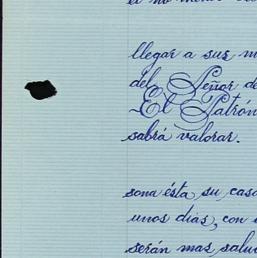 llegar a sus m
del Señor de
El Patrón
sabrá valorar.
sona ésta su casa
unos días, con
serán mas salu